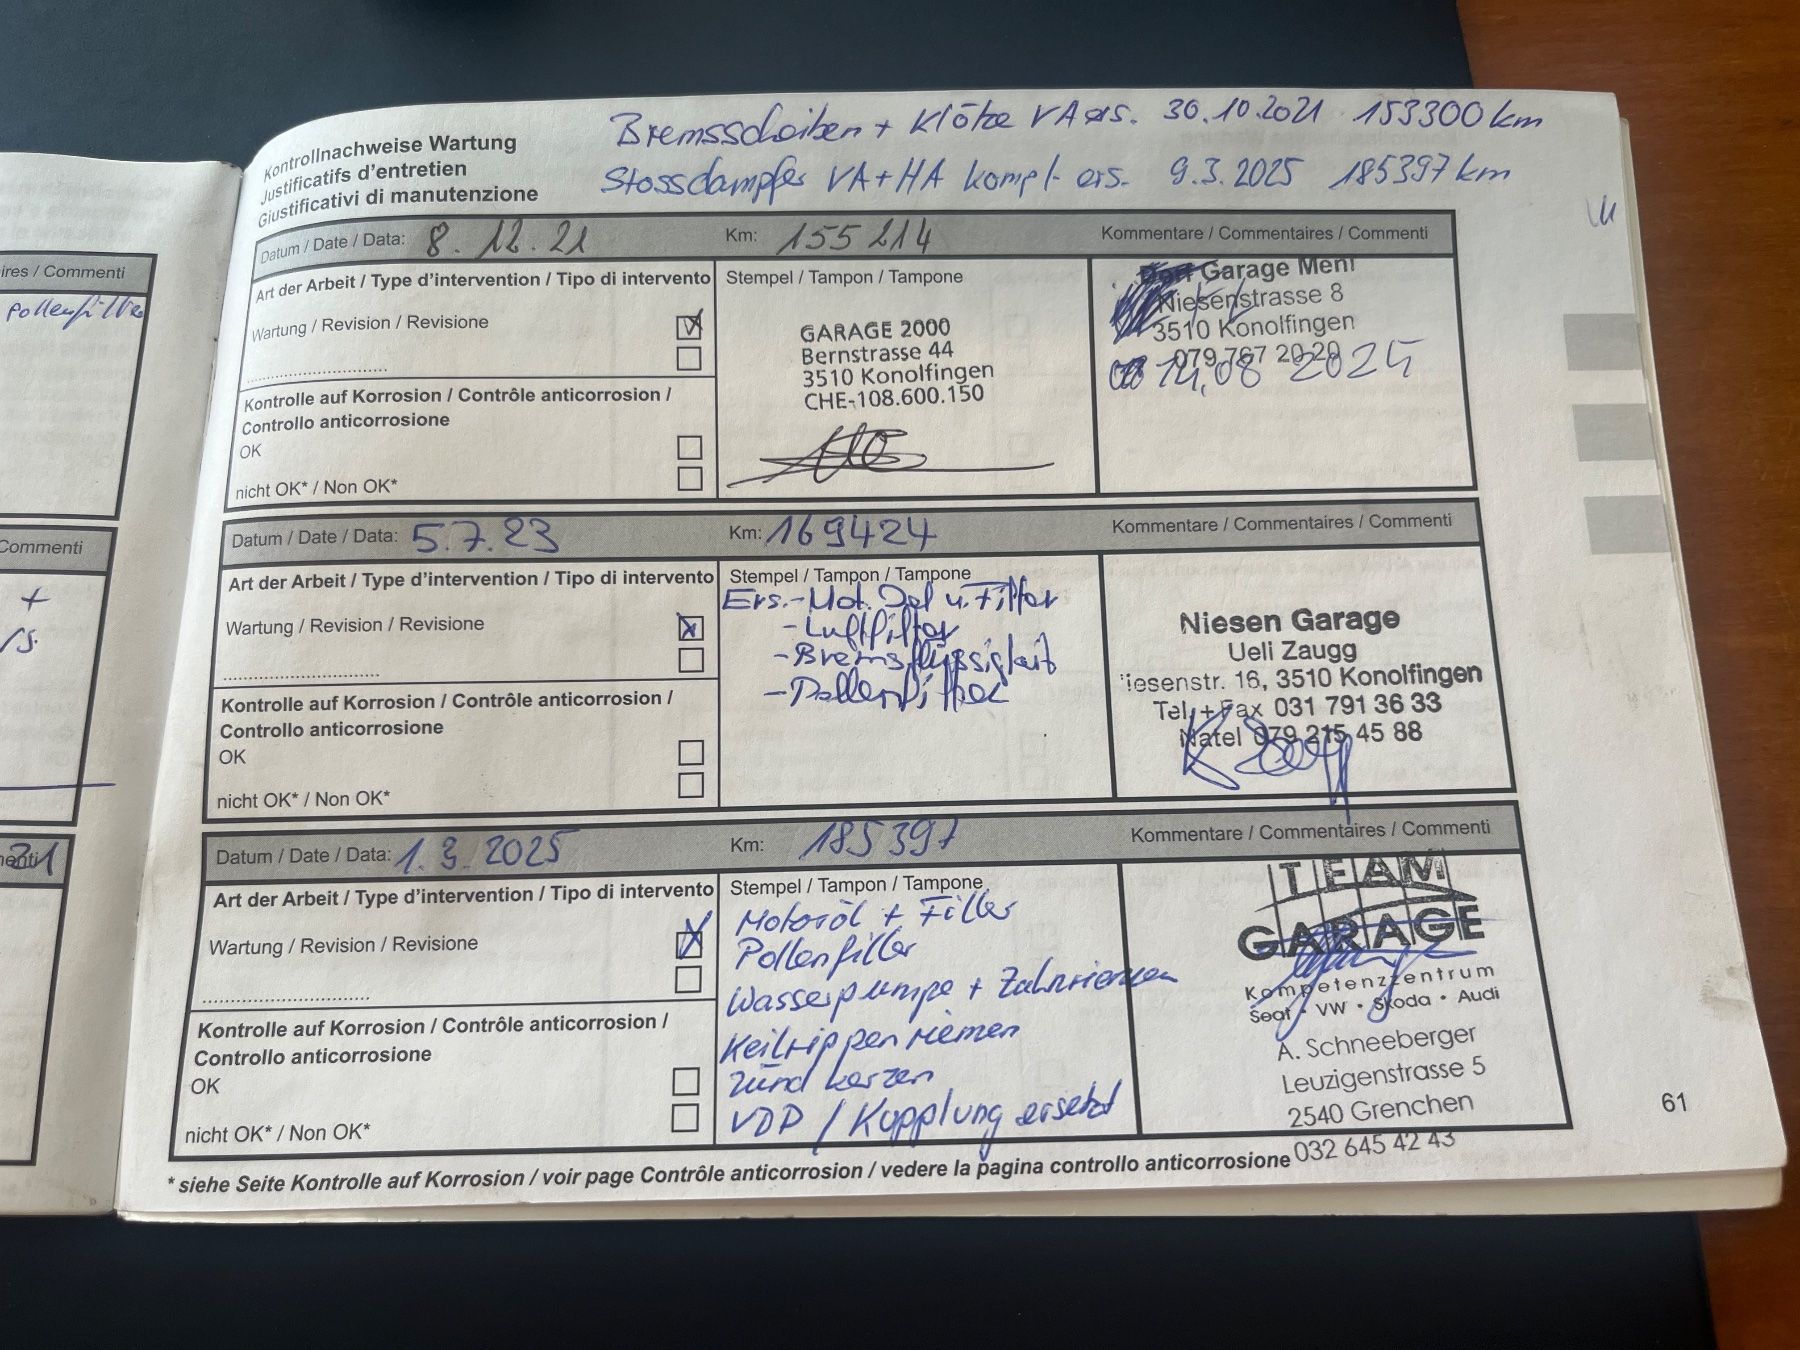 ires / Commenti
Pollenfilter
Commenti
+
rs.
menti
21
Bremsscheiben + Klötze VA ers. 30.10.2021 153300 km
Stossdämpfer VA + HA kompl. ers. 9.3.2025 185397 km
Kontrollnachweise Wartung
Justificatifs d'entretien
Giustificativi di manutenzione
Datum / Date / Data: 8.12.21 Km: 155214 Kommentare / Commentaires / Commenti
Art der Arbeit / Type d'intervention / Tipo di intervento
Wartung / Revision / Revisione
Kontrolle auf Korrosion / Contrôle anticorrosion /
Controllo anticorrosione
OK
nicht OK* / Non OK*
Stempel / Tampon / Tampone
GARAGE 2000
Bernstrasse 44
3510 Konolfingen
CHE-108.600.150
Garage
Niesenstrasse 8
3510 Konolfingen
079 767 20 20
14.08 2024
Datum / Date / Data: 5.7.23 Km: 169424 Kommentare / Commentaires / Commenti
Art der Arbeit / Type d'intervention / Tipo di intervento
Wartung / Revision / Revisione
Kontrolle auf Korrosion / Contrôle anticorrosion /
Controllo anticorrosione
OK
nicht OK* / Non OK*
Stempel / Tampon / Tampone
Ers.- Mot. Oel u. Filter
- Luftfilter
- Bremsflüssigkeit
- Pollenfilter
Niesen Garage
Ueli Zaugg
iesenstr. 16, 3510 Konolfingen
Tel. + Fax 031 791 36 33
Natel 079 215 45 88
Datum / Date / Data: 1.3.2025 Km: 185397 Kommentare / Commentaires / Commenti
Art der Arbeit / Type d'intervention / Tipo di intervento
Wartung / Revision / Revisione
Kontrolle auf Korrosion / Contrôle anticorrosion /
Controllo anticorrosione
OK
nicht OK* / Non OK*
Stempel / Tampon / Tampone
Motoröl + Filter
Pollenfilter
Wasserpumpe + Zahnriemen
Keilrippenriemen
Zündkerzen
VDD / Kupplung ersetzt
TEAM
GARAGE
Kompetenzzentrum
Seat • VW • Skoda • Audi
A. Schneeberger
Leuzigenstrasse 5
2540 Grenchen
032 645 42 43
* siehe Seite Kontrolle auf Korrosion / voir page Contrôle anticorrosion / vedere la pagina controllo anticorrosione
61